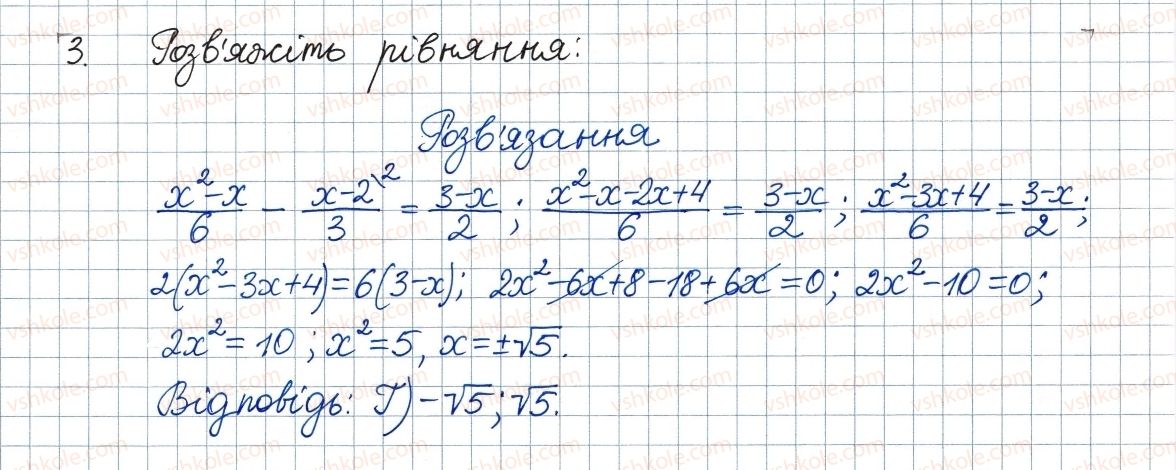 3. Розв'яжіть рівняння:
Розв'язання
(x² - x)/6 - (x - 2\²)/3 = (3 - x)/2 ; (x² - x - 2x + 4)/6 = (3 - x)/2 ; (x² - 3x + 4)/6 = (3 - x)/2 ;
2(x² - 3x + 4) = 6(3 - x); 2x² - 6x + 8 - 18 + 6x = 0; 2x² - 10 = 0;
2x² = 10 ; x² = 5, x = ±√5.
Відповідь: Г) -√5; √5.